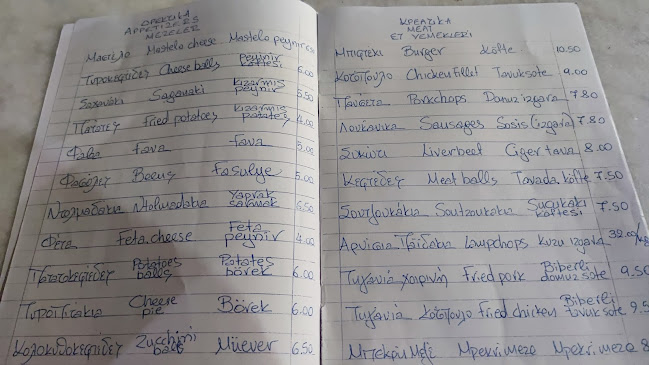 ΟΡΕΚΤΙΚΑ
APPETIZEES
MEZELER
Μαστέλο Mastelo cheese Mastelo peynir
Τυροκεφτέδες Cheese balls peynir köftesi 6.00
Σαγανάκι Saganaki kızarmış peynir 5.50
Πατάτες fried potatoes kızarmış potates 4.00
Φάβα fava fava 5.00
Φασόλες Beens fasulye 5.00
Ντολμαδάκια Ntolmadakia yaprak sarmak 6.50
Φέτα Feta cheese Feta peynir 4.00
Πατατοκεφτέδες Potatoes balls Potates börek 6.00
Τυροπιτάκια Cheese pie Börek 6.00
Κολοκυθοκεφτέδες Zucchini balls Müever 6.50
ΚΡΕΑΤΙΚΑ
MEAT
ET YEMEKLERI
Μπιφτέκι Burger köfte 10.50
Κοτόπουλο Chicken fillet Tavuk sote 9.00
Πανσέτα Porkchops Domuz izgara 7.80
Λουκάνικα Sausages Sosis (izgara) 7.80
Συκώτι Liver beef Ciger tava 8.00
Κεφτέδες Meat balls Tavada köfte 7.50
Σουτζουκάκια Soutzoukakia Sucukaki köftesi 7.50
Αρνίσια Παϊδάκια Lampchops Kuzu izgara
Τηγανιά χοιρινή Fried pork Biberli domuz sote 9.50
Τηγανιά Κοτόπουλο Fried chicken Biberli tavuk sote 9.5
Μπεκρή Μεζέ Mpekri meze Mpekri meze